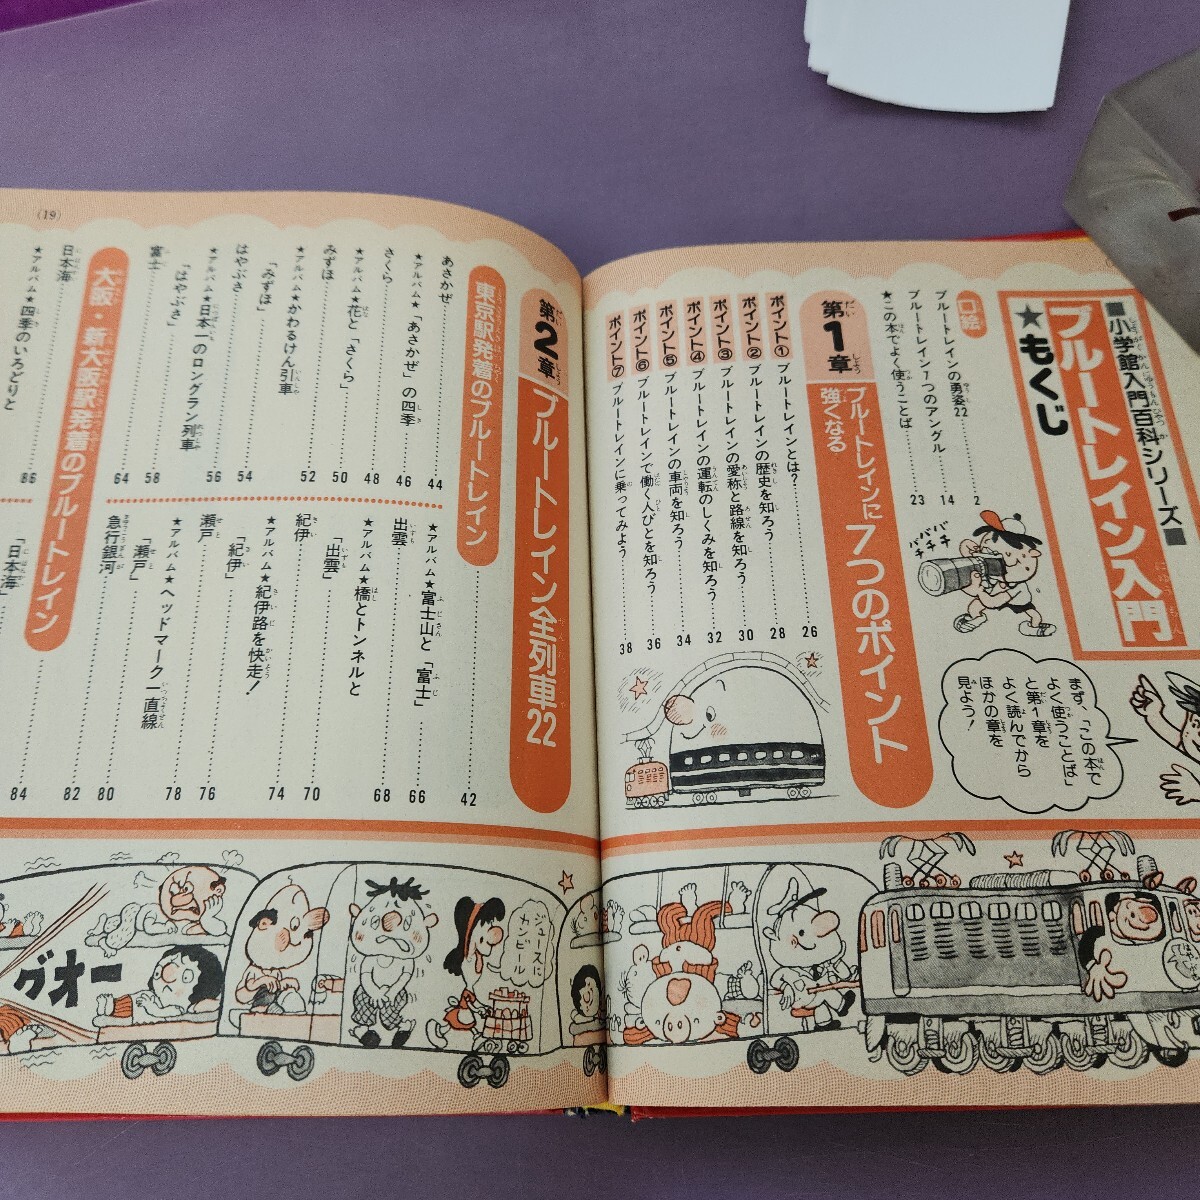 ■小学館入門百科シリーズ■
ブルートレイン入門
★もくじ
口絵
ブルートレインの勇姿22……2
ブルートレイン7つのアングル……14
★この本でよく使うことば……23
パバパバ
チチチチ
まず、「この本で
よく使うことば」
と第1章を
よく読んでから
ほかの章を
見よう！
第1章 ブルートレインに強くなる7つのポイント
ポイント① ブルートレインとは？……26
ポイント② ブルートレインの歴史を知ろう……28
ポイント③ ブルートレインの愛称と路線を知ろう……30
ポイント④ ブルートレインの運転のしくみを知ろう……32
ポイント⑤ ブルートレインの車両を知ろう……34
ポイント⑥ ブルートレインで働く人びとを知ろう……36
ポイント⑦ ブルートレインに乗ってみよう……38
第2章 ブルートレイン全列車22……42
東京駅発着のブルートレイン
あさかぜ……44
★アルバム★「あさかぜ」の四季……46
さくら……48
★アルバム★花と「さくら」……50
みずほ……52
★アルバム★かわるけん引車
「みずほ」……54
はやぶさ……56
★アルバム★日本一のロングラン列車
「はやぶさ」……58
富士……64
★アルバム★富士山と「富士」……66
出雲……68
★アルバム★橋とトンネルと
「出雲」……70
紀伊……74
★アルバム★紀伊路を快走！
「紀伊」……76
瀬戸……78
★アルバム★ヘッドマーク一直線
「瀬戸」……80
急行銀河……82
大阪・新大阪駅発着のブルートレイン……84
日本海……86
★アルバム★四季のいろどりと
「日本海」
(19)
グオー
ジュースに
カンビール